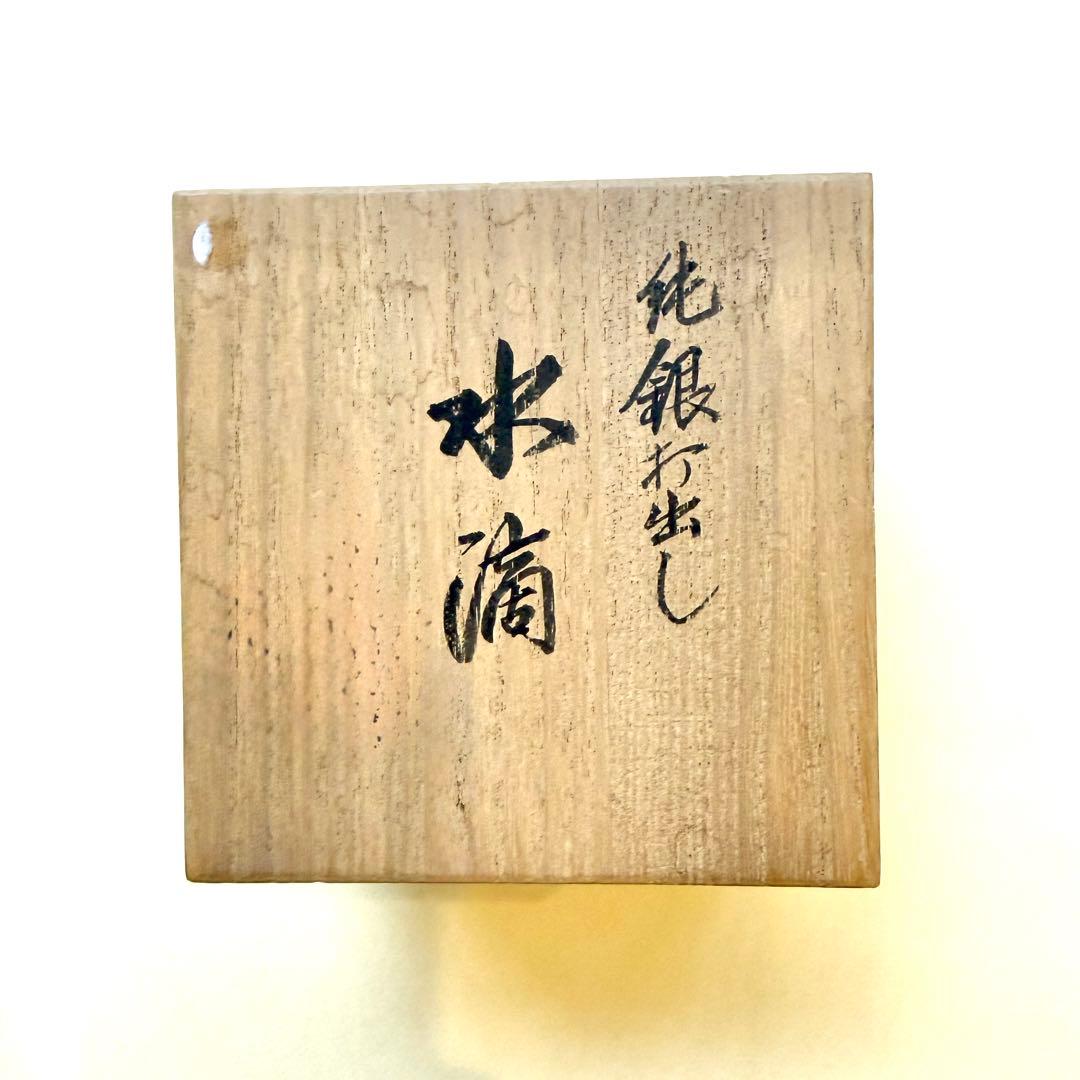 純銀打出し
水滴